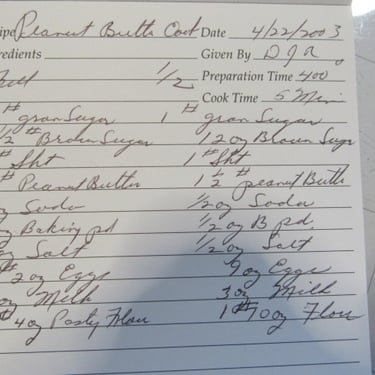 ipe Peanut Butter Cook Date 4/22/2003
redients Given By D J A.
Full 1/2 Preparation Time 400
Cook Time 5 Min
# gran Sugar 1 # gran Sugar
1/2 # Brown Sugar 12 oz Brown Sugr
# Sht 1 # Sht
# Peanut Butter 1 1/2 # peanut Butt
oz Soda 1/2 oz Soda
oz Baking pd 1/2 oz B pd.
oz Salt 1/2 oz Salt
# 2 oz Eggs 9 oz Eggs
oz Milk 3 oz Milk
# 4 oz Pasty Flour 1 # 10 oz Flour